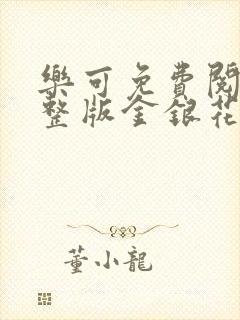 樂可免費閱
整版金銀花
董小龍